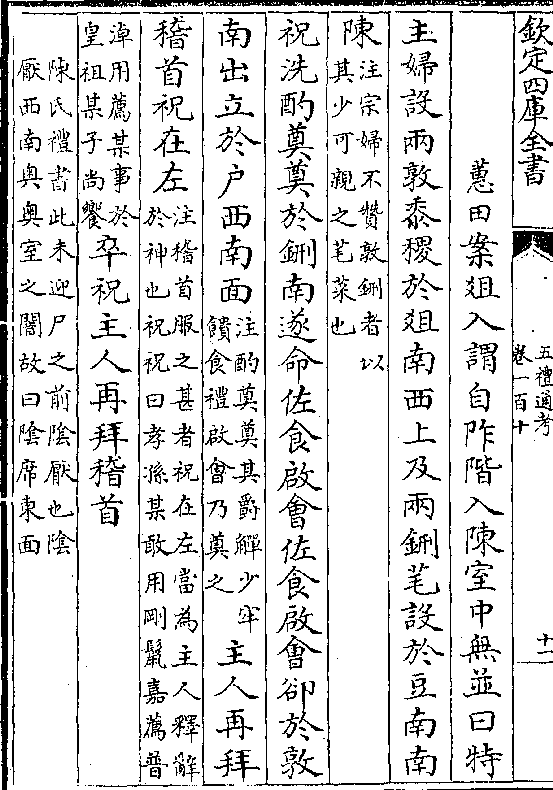 欽定四庫全書
五禮通考
卷一百十
十一
蕙田案俎入謂自阼階入陳室中無並曰特
主婦設兩敦黍稷於俎南西上及兩鉶芼設於豆南南
陳注宗婦不贊敦鉶者以其少可親之芼菜也
祝洗酌奠奠於鉶南遂命佐食啟會佐食啟會卻於敦
南出立於户西南面注酌奠奠其爵觶少牢饋食禮啟會乃奠之主人再拜
稽首祝在左注稽首服之甚者祝在左當為主人釋辭於神也祝祝曰孝孫某敢用剛鬣嘉薦普
淖用薦某事於皇祖某子尚饗卒祝主人再拜稽首
陳氏禮書此未迎尸之前陰厭也陰
厭西南奥奥室之闇故曰陰席東面